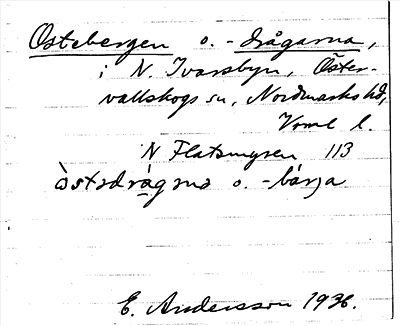 Ostebergen o. -drågarna,
i N. Ivarsbyn, Öster-
vallskogs sn, Nordmarks hd,
Verml l.
N Flatsmyren 113
o. -bärja
E. Andersson 1936.